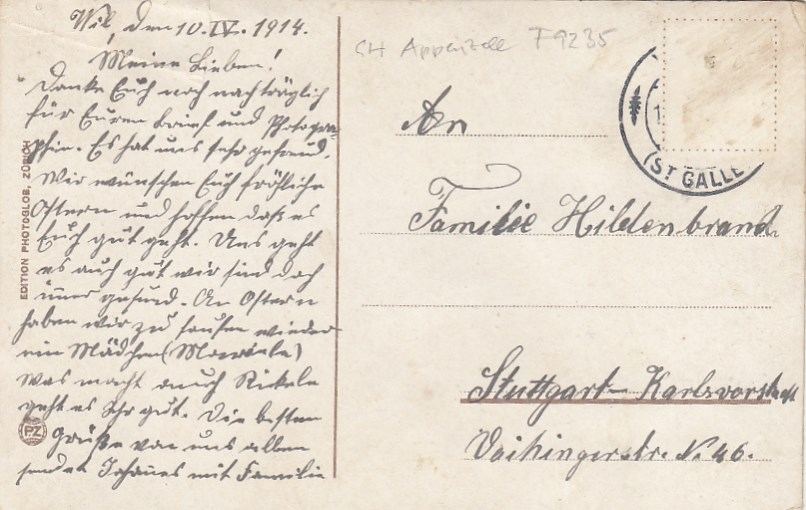 Wil, den 10.IV.1914.
Meine Lieben!
Danke Euch noch nachträglich
für Euren Brief und Photogra-
phie. Es hat uns sehr gefreud.
Wir wünschen Euch fröhliche
Ostern und hoffen daß es
Euch gut geht. Uns geht
es auch gut wir sind doch
imer gesund. An Ostern
haben wir zu taufen wieder
ein Mädchen
Was macht auch Rickele
geht es Ihr gut. Die besten
Grüße von uns allen
sendet Johannes mit Familie
EDITION PHOTOGLOB, ZÜRICH
PZ
CH Appenzell F9235
(ST GALLE
An
Familie Hildenbrand
Stuttgart-Karlsvorstadt
Vaihingerstr. No 46.